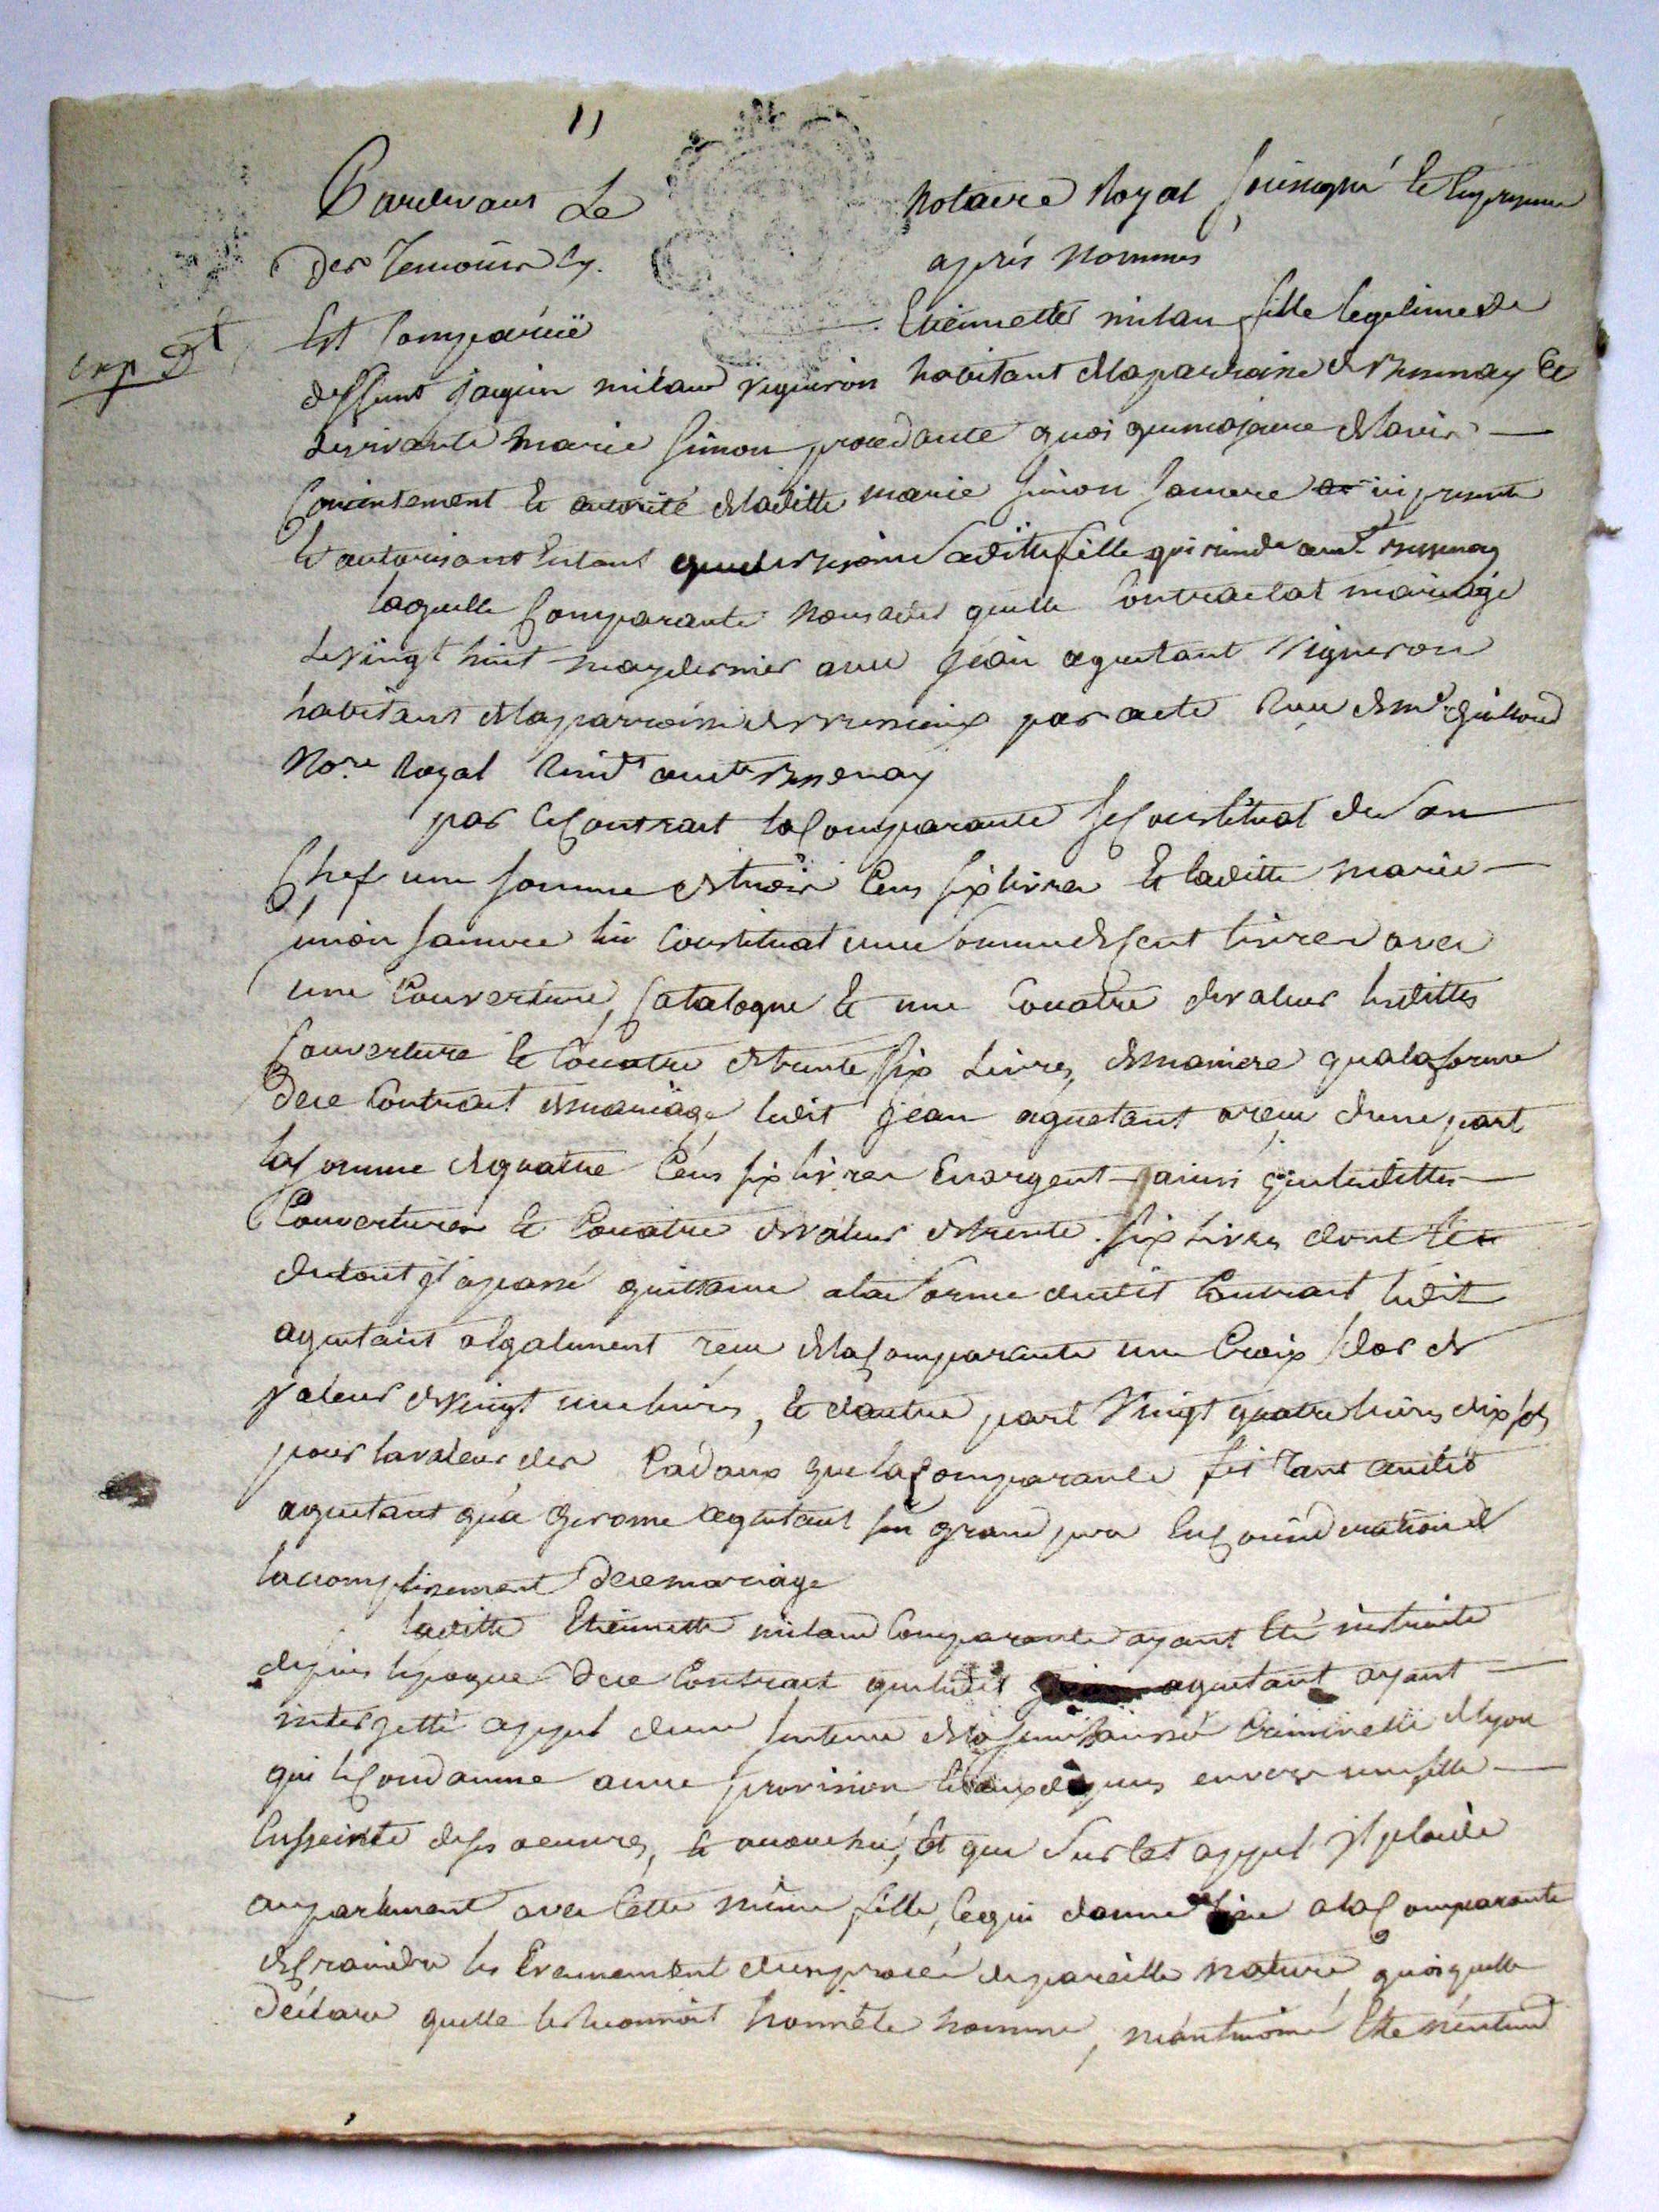 11
Pardevant Le notaire Royal soussigné et en presence
des Temoins cy. après nommés
exp Dt
Est Comparüe Etiennette milan fille legitime de
deffunt Jaques milan vigneron habitant de la parroisse de & de
survivante marie simon procedante quoi que majeure de l'avis
Consentement et autorité de laditte marie simon sa mere ici presente
et autorisant en tant que de besoin saditte fille qui reside audt
laquelle Comparante nous a dit quelle Contractat mariage
le vingt huit may dernier avec Jean aguetant vigneron
habitant de la parroisse de par acte Recu de me Guilloud
Nore Royal Residt audt
par ce Contrat la Comparante se Constituat de son
Chef une somme de trois Cens six livres et laditte marie
simon sa mere lui Constituat une somme de cent livres avec
une Couverture Catalogne et une Couatre de valeur lesdittes
Couverture et Couatre de trente six Livres, de maniere qu a la forme
de ce Contrat de mariage ledit Jean aguetant a reçu d'une part
la somme de quatre Cens six livres En argent ainsi que lesdittes
Couvertures et Couatre de valeur de trente six Livres dont et
du tout il a passé quittance a la forme dudit Contrat ledit
aguetant a egalement reçu de la Comparante une Croix d'or de
valeur de vingt une livres, et d'autre part vingt quatre livres dix sols
pour la valeur des Cadaux que la Comparante fit tant audit
aguetant qu'a Gerome aguetant son grand pere En Consideration de
laccomplissement de ce mariage
laditte Etiennette milan Comparante ayant Eté instruite
depuis lepoque de ce Contrat que ledit aguetant ayant
interjetté appel d'une sentence de la senechaussé Criminelle de Lyon
qui le Condamne a une provision et aux depens envers une fille
Enceinte de ses oeuvres, et accouchée, Et que sur cet appel il plaide
au parlement avec Cette même fille, Ce qui donne lieu a la Comparante
de Craindre les Evenement d'un procés de pareille nature, quoi quelle
déclare quelle le reconnoit honnête homme, néantmoins Elle n'entend